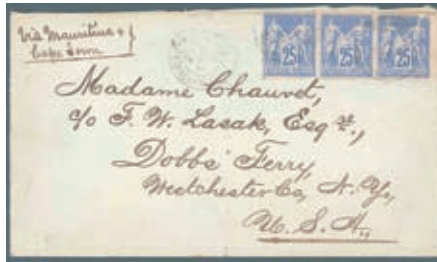 Via Mauritius &
Cape Town
25 25 25
Madame Chauvet,
c/o F. W. Lasak, Esqre.,
Dobbs' Ferry,
Westchester Co, N. Y.,
U. S. A.,